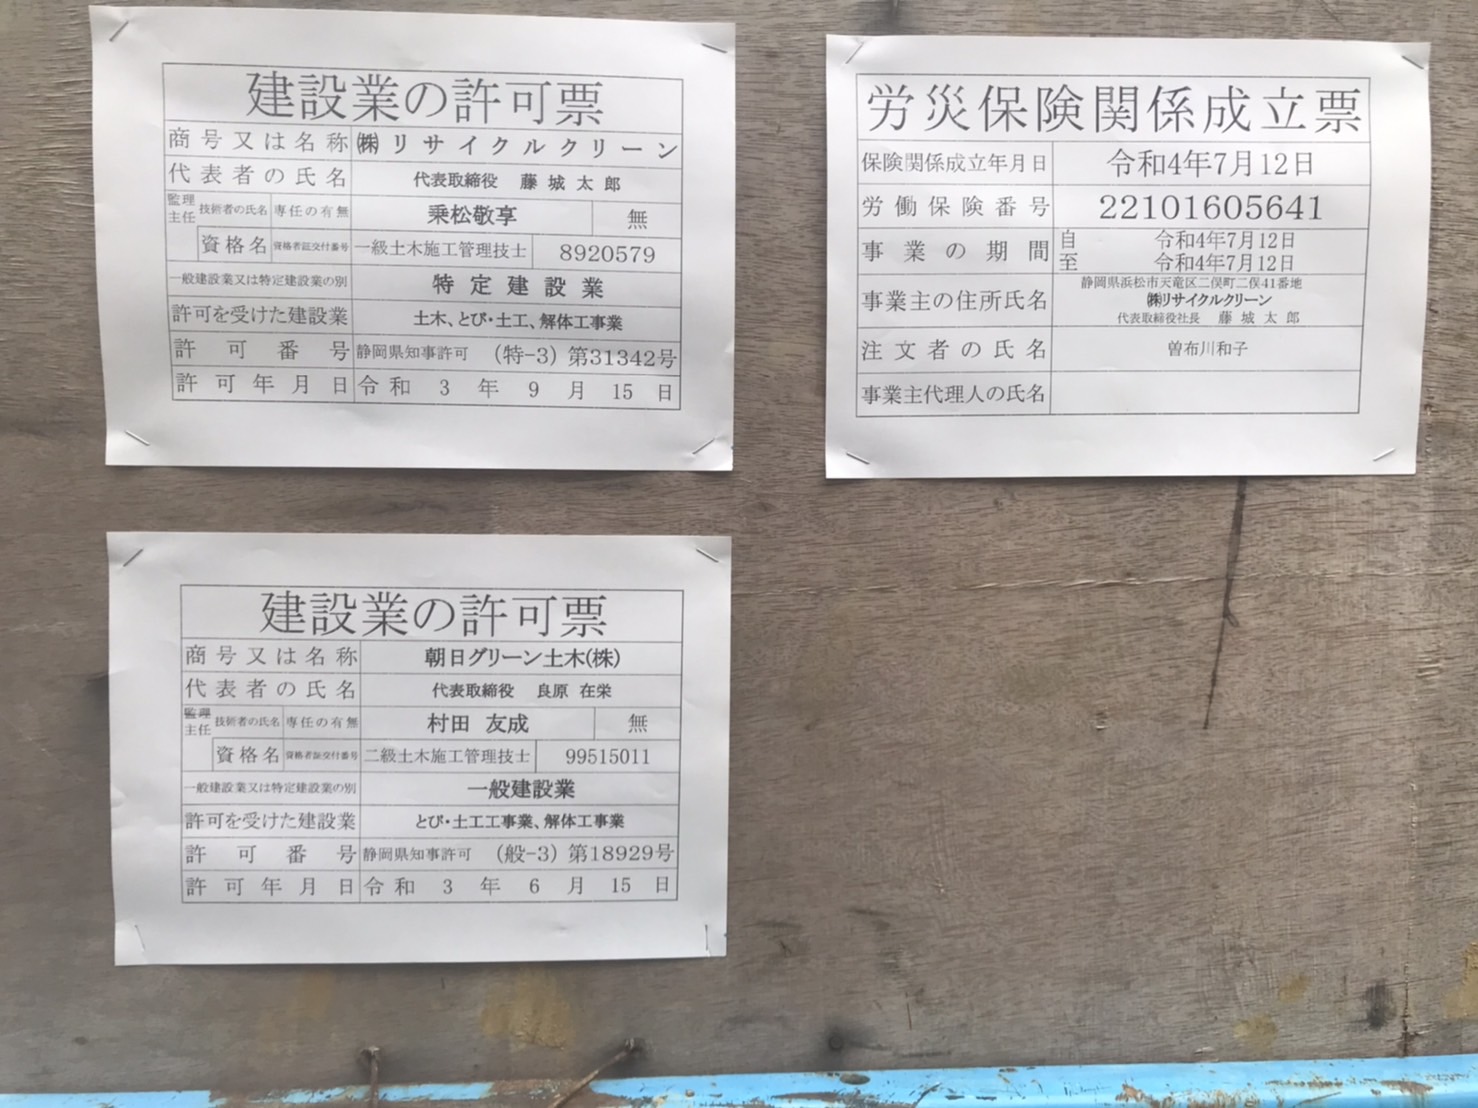 建設業の許可票
商号又は名称 ㈱リサイクルクリーン
代表者の氏名 代表取締役 藤城太郎
監理
主任 技術者の氏名 専任の有無 乗松敬享 無
資格名 資格者証交付番号 一級土木施工管理技士 8920579
一般建設業又は特定建設業の別 特定建設業
許可を受けた建設業 土木、とび・土工、解体工事業
許可番号 静岡県知事許可 (特-3) 第31342号
許可年月日 令和 3 年 9 月 15 日
労災保険関係成立票
保険関係成立年月日 令和4年7月12日
労働保険番号 22101605641
事業の期間 自 令和4年7月12日
至 令和4年7月12日
事業主の住所氏名 静岡県浜松市天竜区二俣町二俣41番地
㈱リサイクルクリーン
代表取締役社長 藤城太郎
注文者の氏名 曽布川和子
事業主代理人の氏名
建設業の許可票
商号又は名称 朝日グリーン土木(株)
代表者の氏名 代表取締役 良原 在栄
監理
主任 技術者の氏名 専任の有無 村田 友成 無
資格名 資格者証交付番号 二級土木施工管理技士 99515011
一般建設業又は特定建設業の別 一般建設業
許可を受けた建設業 とび・土工工事業、解体工事業
許可番号 静岡県知事許可 (般-3) 第18929号
許可年月日 令和 3 年 6 月 15 日